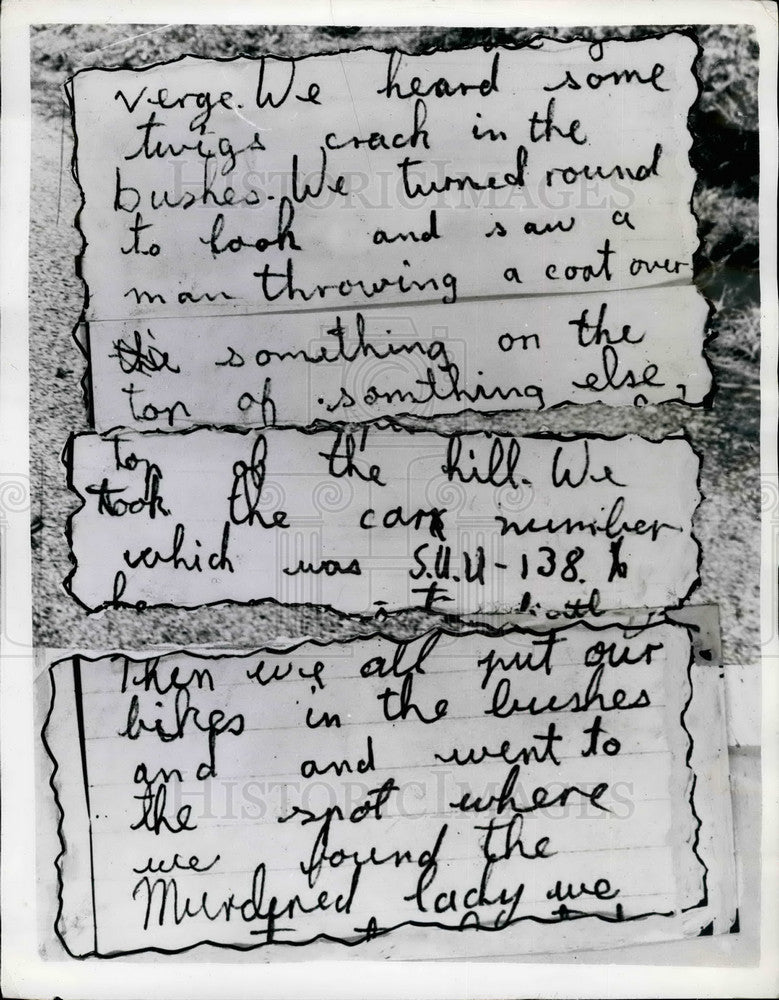 verge. We heard some
twigs crack in the
bushes. We turned round
to look and saw a
man throwing a coat over
something on the
top of somthing else,
top of the hill. We
took the car number
which was S.U.U-138.
Then we all put our
bikes in the bushes
and and went to
the spot where
we found the
Murdered lady we
HISTORIC IMAGES
HISTORIC IMAGES